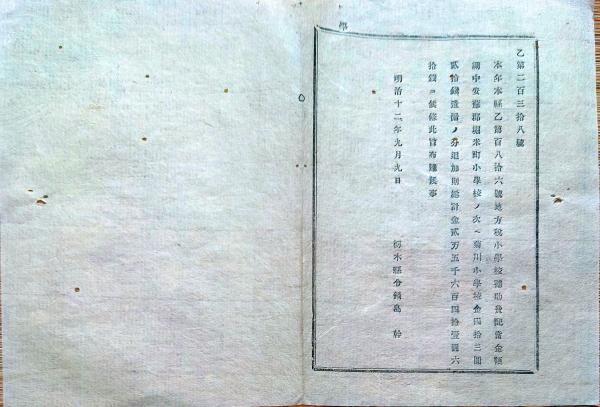 乙第二百三拾八號
本年本縣乙第百八拾六號地方稅小學校補助費配當金額
調中安蘇郡堀米町小學校ノ次ヘ菊川小學校金四拾三圓
貳拾錢遺漏ノ分追加則總計金貳万五千六百四拾壹圓六
拾錢ヨ候條此旨布達候事
明治十二年九月九日
栃木縣令鍋島 幹
學